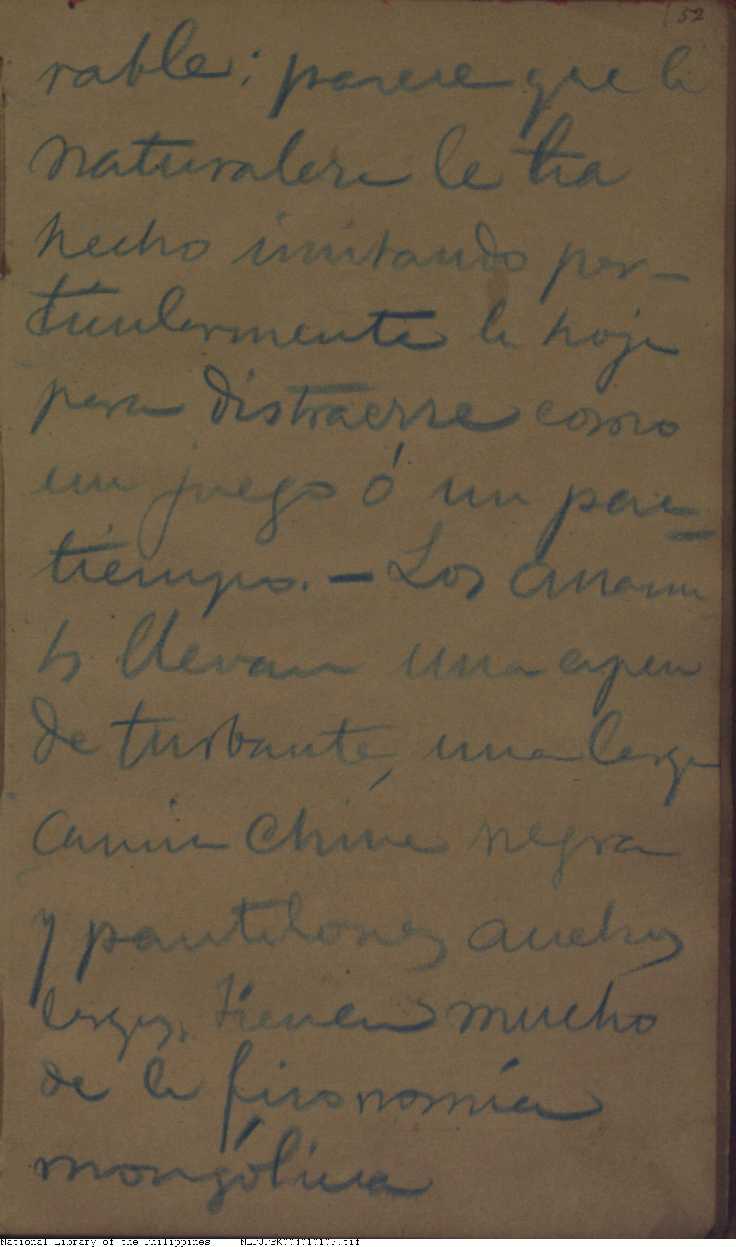 52
rable; parece que la
naturaleza le ha
hecho imitando par-
ticularmente la hoja
para distraerse como
un juego ó un pasa-
tiempo. — Los anami-
tas llevan una especie
de turbante, una larga
camisa china negra
y pantalones anchos
largos, tienen mucho
de la fisonomía
mongólica
National Library of the Philippines